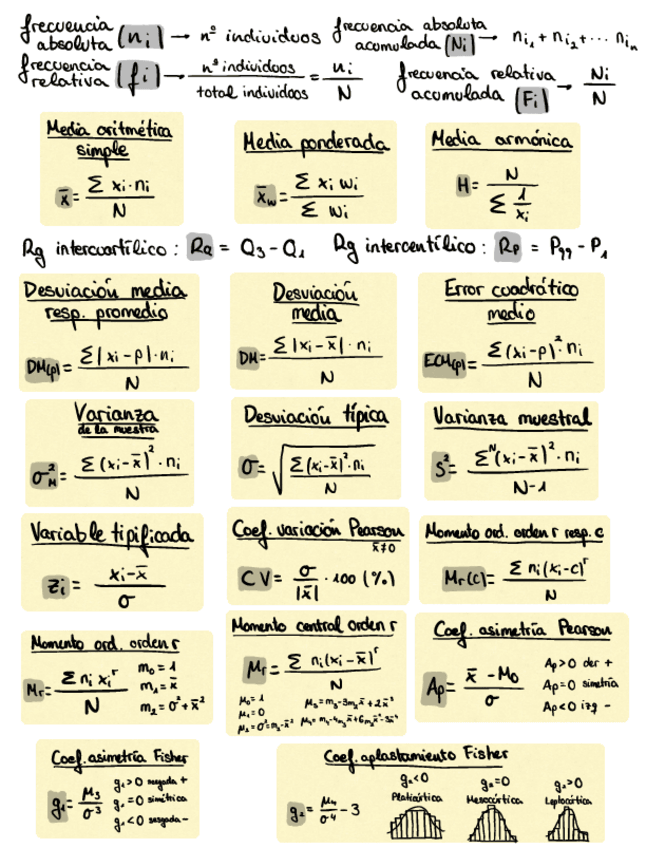 frecuencia absoluta (ni) → nº individuos
frecuencia absoluta acumulada (Ni) → ni₁ + ni₂ + ··· niₙ
frecuencia relativa (fi) → nº individuos / total individuos = ni / N
frecuencia relativa acumulada (Fi) → Ni / N
Media aritmética simple
x̄ = Σ xi·ni / N
Media ponderada
x̄w = Σ xi wi / Σ wi
Media armónica
H = N / Σ 1/xi
Rg intercuartílico : RQ = Q3 - Q1
Rg intercentílico : Rp = P99 - P1
Desviación media resp. promedio
DM(p) = Σ|xi - p|·ni / N
Desviación media
DM = Σ|xi - x̄|·ni / N
Error cuadrático medio
ECM(p) = Σ(xi - p)²·ni / N
Varianza de la muestra
σ²M = Σ(xi - x̄)²·ni / N
Desviación típica
σ = √(Σ(xi - x̄)²·ni / N)
Varianza muestral
S² = Σᴺ(xi - x̄)²·ni / N-1
Variable tipificada
zi = xi - x̄ / σ
Coef. variación Pearson
x̄≠0
CV = σ / |x̄| · 100 (%)
Momento ord. orden r resp. c
Mr(c) = Σ ni(xi - c)ʳ / N
Momento ord. orden r
Mr = Σ ni xiʳ / N
m0 = 1
m1 = x̄
m2 = σ² + x̄²
Momento central orden r
μr = Σ ni(xi - x̄)ʳ / N
μ0 = 1
μ1 = 0
Coef. asimetría Pearson
Ap = x̄ - Mo / σ
Ap>0 der +
Ap=0 simetría
Ap<0 izq -
Coef. asimetría Fisher
g1 = μ3 / σ³
g1>0 sesgada +
g1=0 simétrica
g1<0 sesgada -
Coef. aplastamiento Fisher
g2 = μ4 / σ⁴ - 3
g2<0 Platicúrtica
g2=0 Mesocúrtica
g2>0 Leptocúrtica